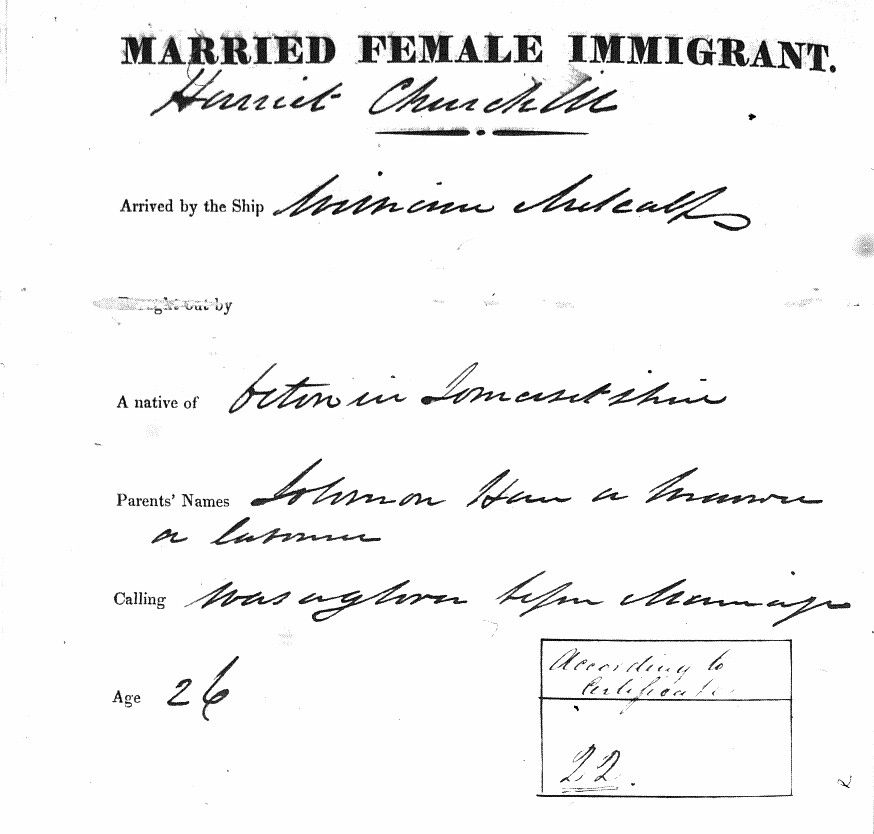 MARRIED FEMALE IMMIGRANT.
Harriet Churchill
Arrived by the Ship William Metcalf
Brought out by
A native of in Somersetshire
Parents' Names Solomon a
a labourer
Calling was a glover before Marriage
Age 26
According to
Certificate
22.